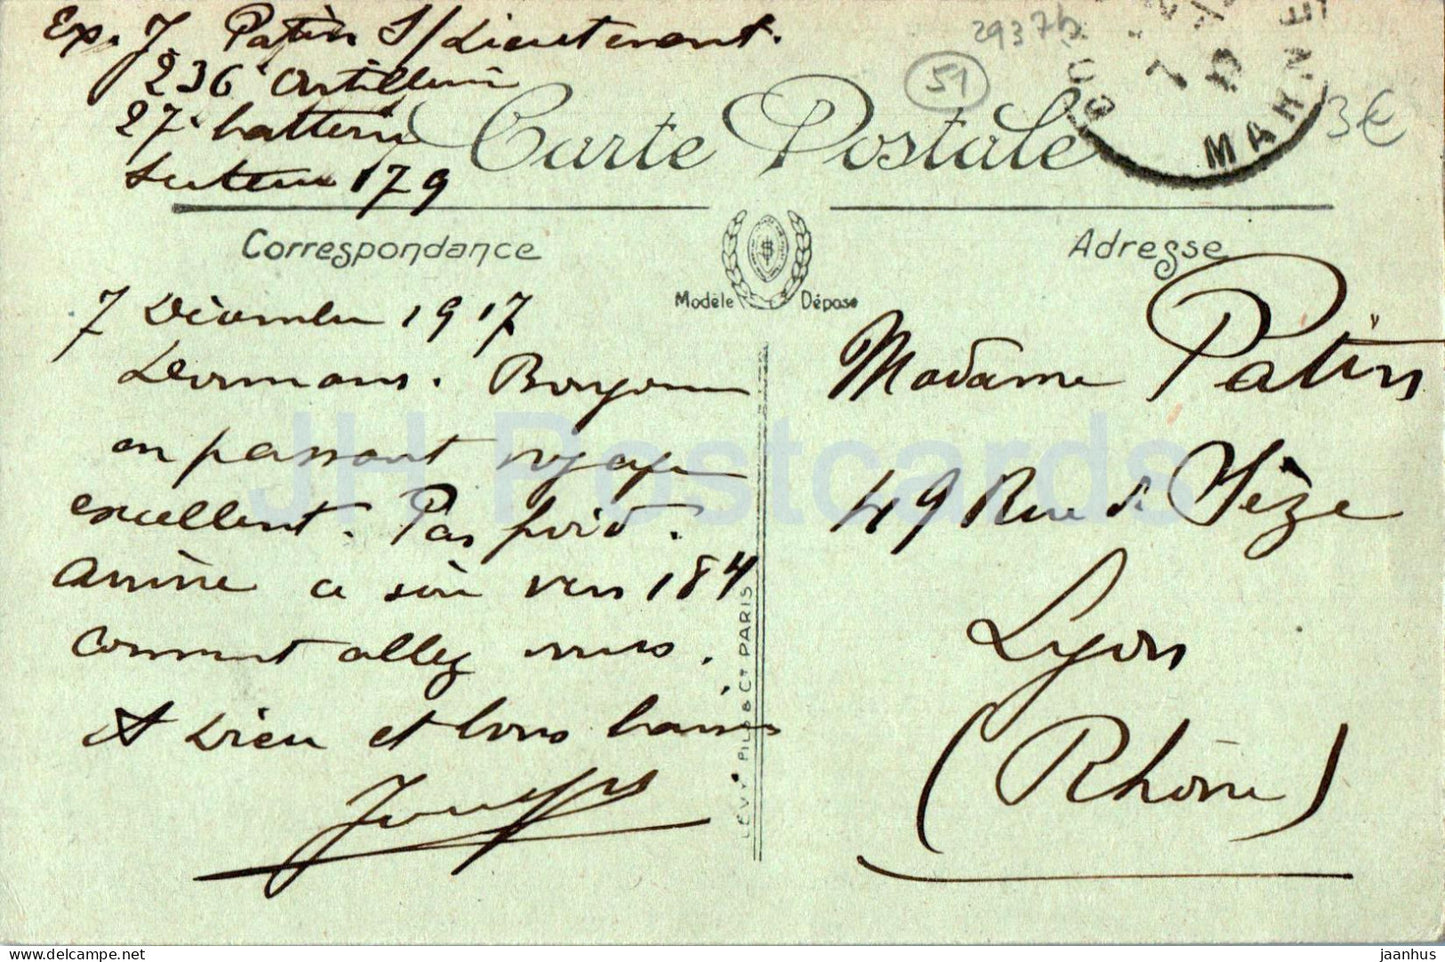 Exp. J Patin S/Lieutenant.
236e Artillerie
27e batterie
Secteur 179
Carte Postale
29376
51
3€
MARNE
Correspondance
Adresse
Modèle Déposé
7 Décembre 1917
Dormans. Bonjour
en passant voyage
excellent. Pas froid.
Arrive ce soir vers 184
Comment allez vous.
A Dieu et bons baisers
Joseph
Madame Patin
49 Rue de Sèze
Lyon
(Rhône)
LÉVY FILS & Cie PARIS
JH Postcards
www.delcampe.net
jaanhus